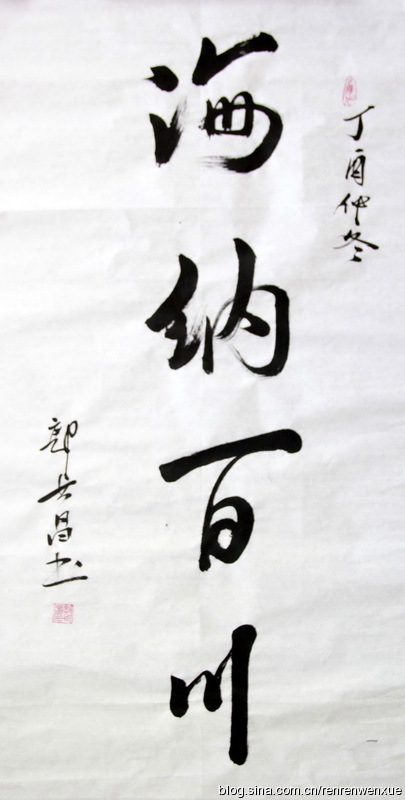 丁酉仲冬
海纳百川
郭昌书
blog.sina.com.cn/renrenwenxue